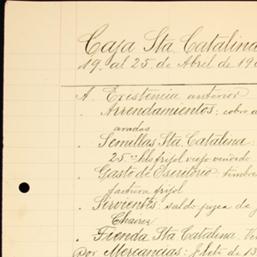 Caja Sta Catalina
19. al 25 de Abril de 19
A Existencia anterior
" Arrendamientos: cobro a
aradas
" Semillas Sta Catalina:
25 frijol viejo vendido
" Gasto de Escritorio timbre
factura frijol
" Sirvientes saldo
Chavez
" Tienda Sta Catalina
Por Mercancías: flete